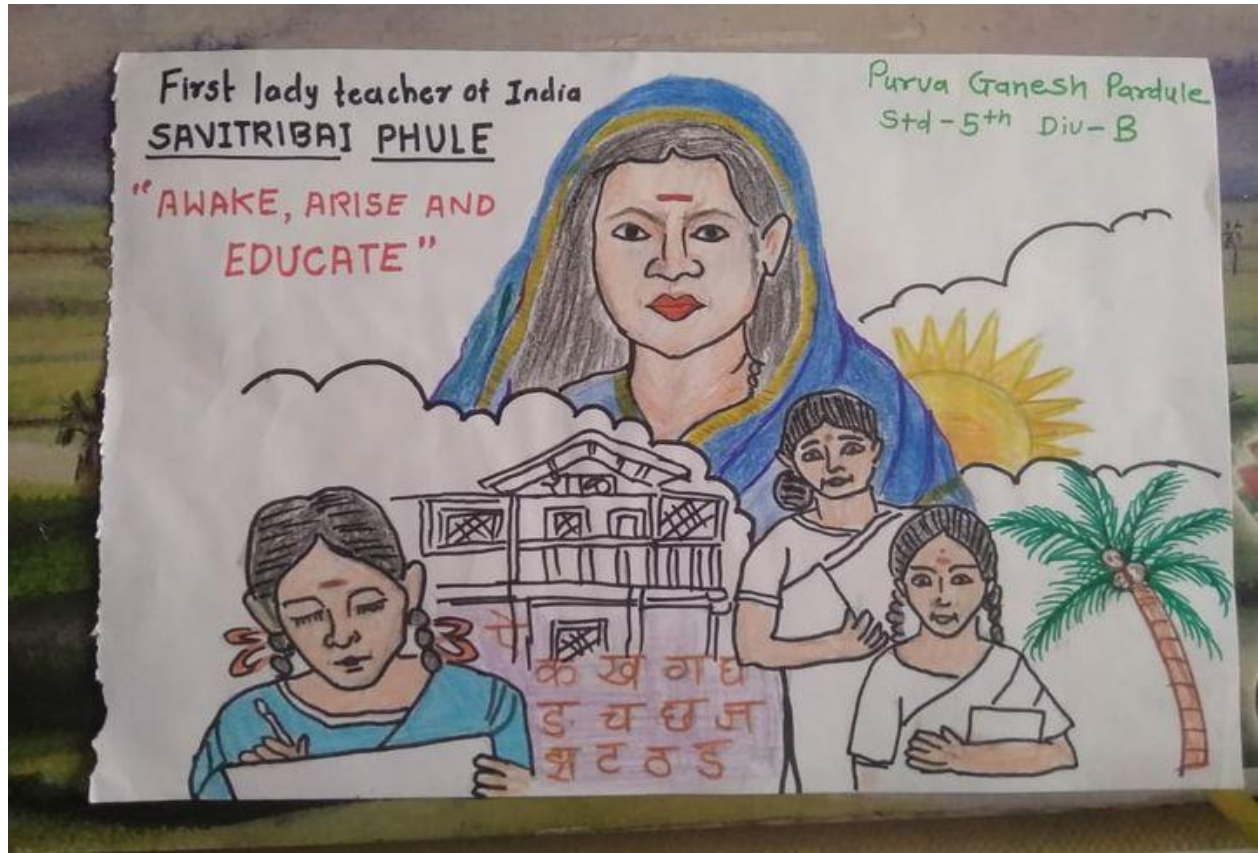 First lady teacher of India
SAVITRIBAI PHULE
"AWAKE, ARISE AND
EDUCATE"
Purva Ganesh Pardule
Std-5th Div-B
क ख ग घ
ङ च छ ज
झ ट ठ ड